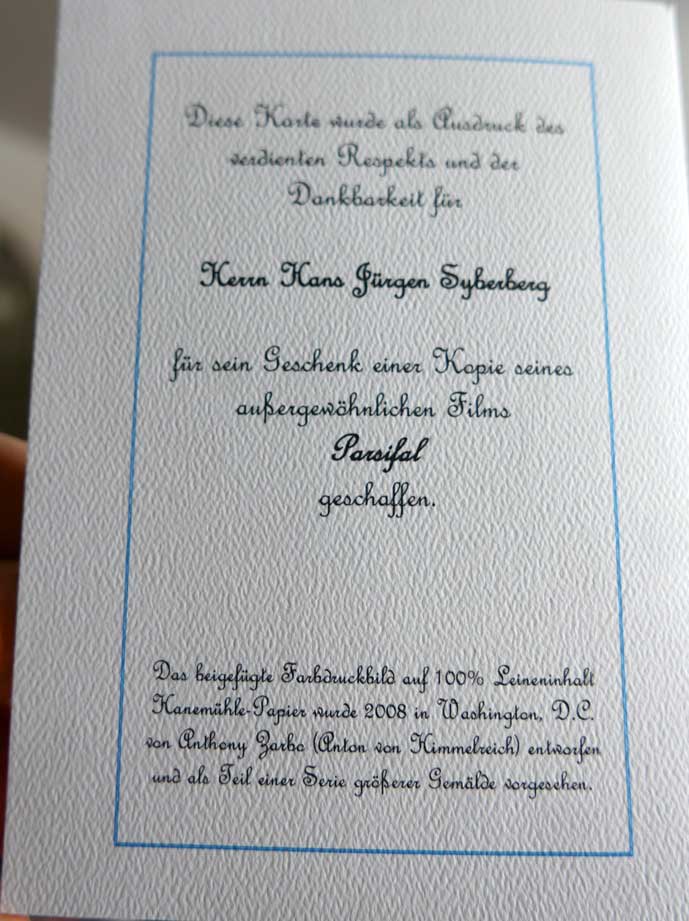 Diese Karte wurde als Ausdruck des
verdienten Respekts und der
Dankbarkeit für
Herrn Hans Jürgen Syberberg
für sein Geschenk einer Kopie seines
außergewöhnlichen Films
Parsifal
geschaffen.
Das beigefügte Farbdruckbild auf 100% Leineninhalt
Hanemühle-Papier wurde 2008 in Washington, D.C.
von Anthony Zarbo (Anton von Himmelreich) entworfen
und als Teil einer Serie größerer Gemälde vorgesehen.